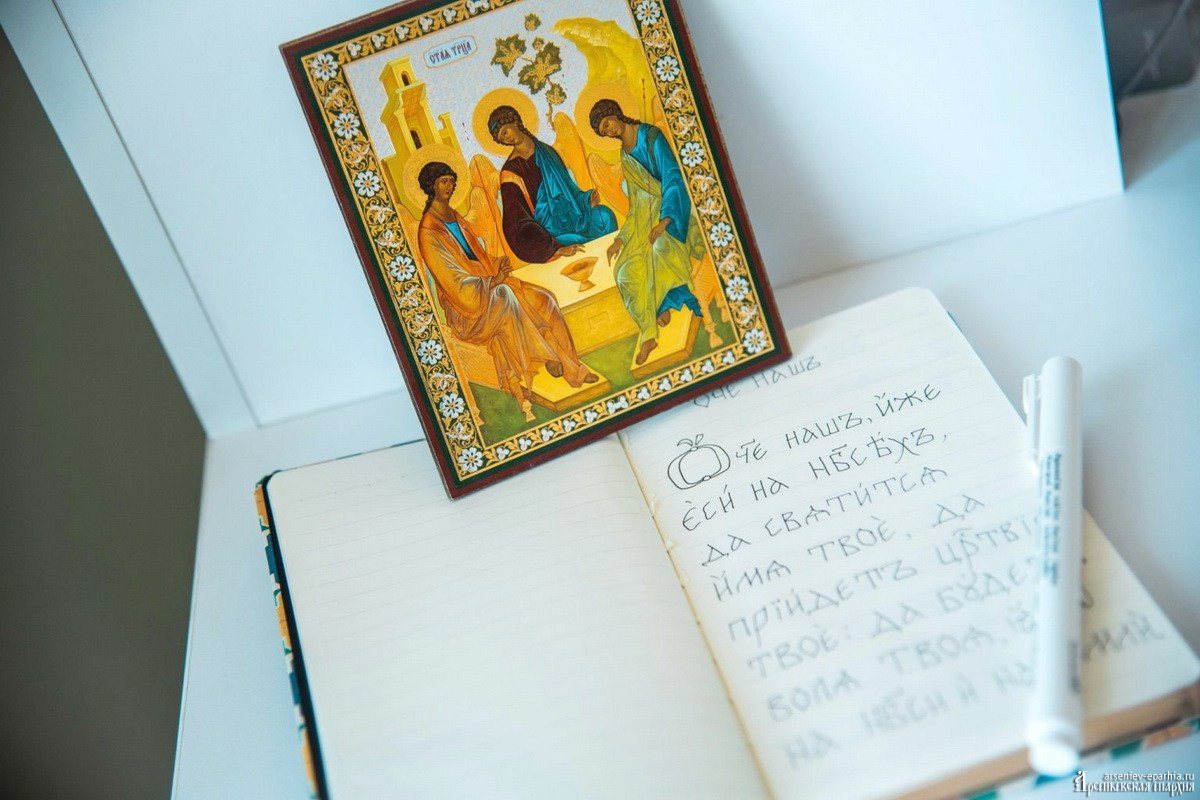 СТАѦ ТРЦА
ОЧЕ НАШЪ
Ѻч҃е нашъ, и҆́же
є҆сѝ на нб҃сѣ́хъ,
да свѧти́тсѧ
и҆́мѧ твоѐ, да
прїи́детъ црⷭ҇твїе
твоѐ: да бꙋ́детъ
волѧ твоѧ,
на нб҃си и҆ на
arseniev-eparhia.ru
Арсеньевская епархия